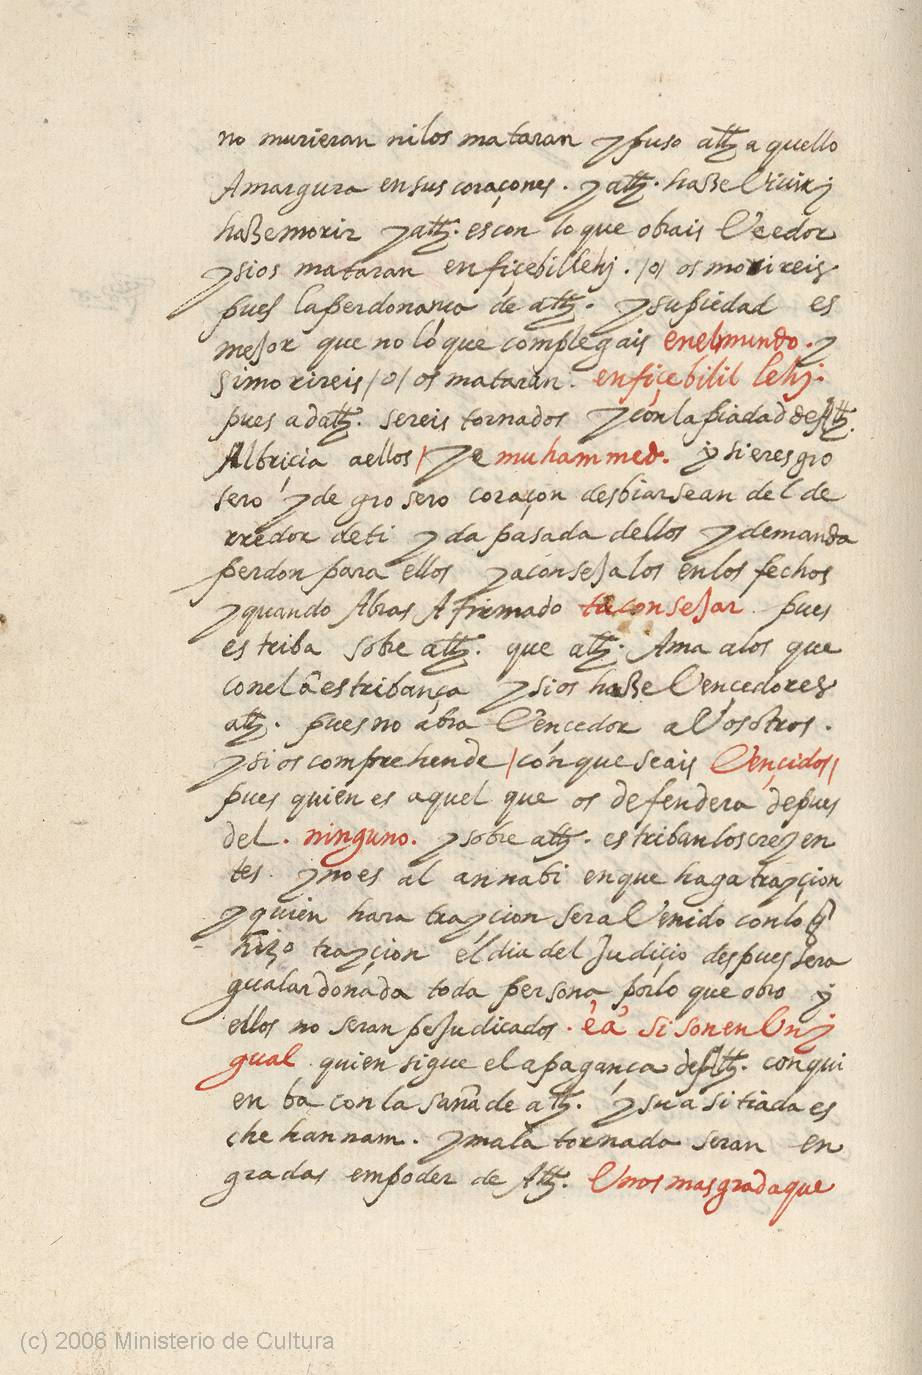 no murieran nilos mataran y puso all̃a aquello
Amargura ensus coraçones. y all̃a. haze Vivir y
haze morir y all̃a. es con lo que obrais Veedor
y sios mataran en fiçebillehi. /o/ os morireis
pues la perdonança de all̃a. y supiedad es
mejor que no lo que complegais enelmundo. y
si morireis /o/ os mataran. en fiçebilil lehi.
pues ad all̃a. sereis tornados y con la piadad de All̃a.
Albriçia aellos / ye muhammed. y si eres gro
sero y de grosero coraçon desbiarsean del de
rredor de ti y da pasada dellos y demanda
perdon para ellos y aconsejalos enlos fechos
y quando Abras Afirmado tu consejar. pues
estriba sobre all̃a. que all̃a. Ama alos que
conel a estribança y sios haze Vençedores
all̃a. pues no abra Vençedor a Vosotros.
y si os comprehende / con que seais Vençidos /
pues quien es aquel que os defendera depues
del. ninguno. y sobre all̃a. estriban los creyen
tes. y no es al annabi en que haga trayçion
y quien hara trayçion sera Venido con lo q̃
hizo trayçion el dia del Judiçio despues sera
gualardonada toda persona por lo que obro y
ellos no seran pejudicados. ea si son en Un y
gual. quien sigue el apagança de All̃a. con qui
en ba con la saña de all̃a. y su asitiada es
chehannam. y mala tornada seran en
gradas empoder de All̃a. Unos mas grada que
(c) 2006 Ministerio de Cultura